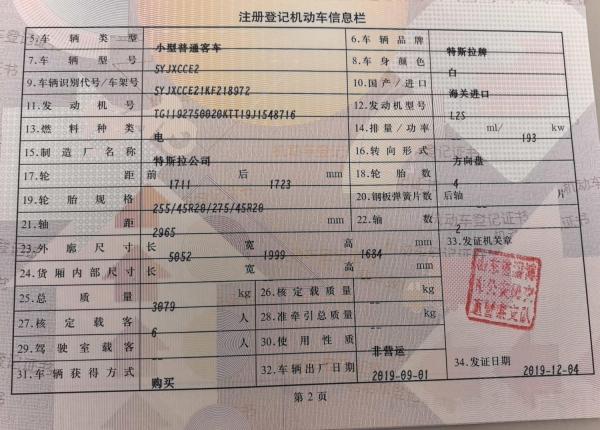 注册登记机动车信息栏
5.车辆类型 小型普通客车 6.车辆品牌 特斯拉牌
7.车辆型号 SYJXCCE2 8.车身颜色 白
9.车辆识别代号/车架号 5YJXCCE21KF218972 10.国产/进口 海关进口
11.发动机号 TG1192750020KTT19J1548716 12.发动机型号 L2S
13.燃料种类 电 14.排量/功率 ml/ 193 kw
15.制造厂名称 特斯拉公司 16.转向形式 方向盘
17.轮距 前 1711 后 1723 mm 18.轮胎数 4
19.轮胎规格 255/45R20/275/45R20 20.钢板弹簧片数 后轴 -- 片
21.轴距 2965 mm 22.轴数 2
23.外廓尺寸 长 5052 宽 1999 高 1684 mm 33.发证机关章
24.货厢内部尺寸 长 -- 宽 -- 高 -- mm
25.总质量 3079 kg 26.核定载质量 -- kg
27.核定载客 6 人 28.准牵引总质量 -- kg
29.驾驶室载客 -- 人 30.使用性质 非营运
31.车辆获得方式 购买 32.车辆出厂日期 2019-09-01 34.发证日期 2019-12-04
第2页